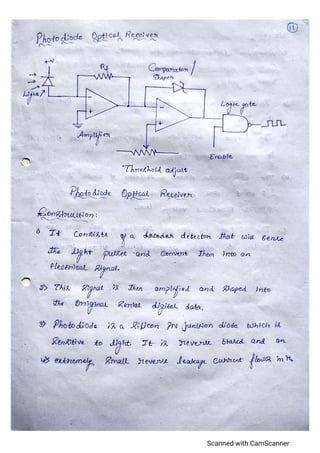 11
Photo diode Optical Receiver
+V
Rf
Comparator /
Shaper
Light
Logic gate
Amplifier
Enable
Threshold adjust
Photo diode Optical Receiver
Construction:
1) It Consists of a decoder detector that will sense
the light pulses and Convert Then into an
Electrical Signal.
2) This Signal is Then amplified and Shaped Into
the Original Serial digital data.
3) Photo diode is a Silicon PN junction diode which is
Sensitive to light. It is reverse biased and on
extremely Small reverse leakage Current flows in
Scanned with CamScanner